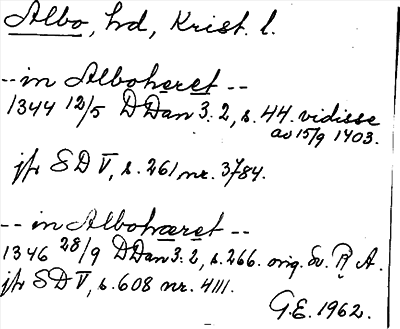 Albo, hd, Krist. l.
-- in Alboheret --
1344 12/5 DDan 3. 2, s. 44. vidisse
av 15/9 1403.
jfr SD V, s. 261 nr. 3784.
-- in Albohæret --
1346 28/9 DDan 3. 2, s. 266. orig. Sv. R A.
jfr SD V, s. 608 nr. 4111.
G.E. 1962.